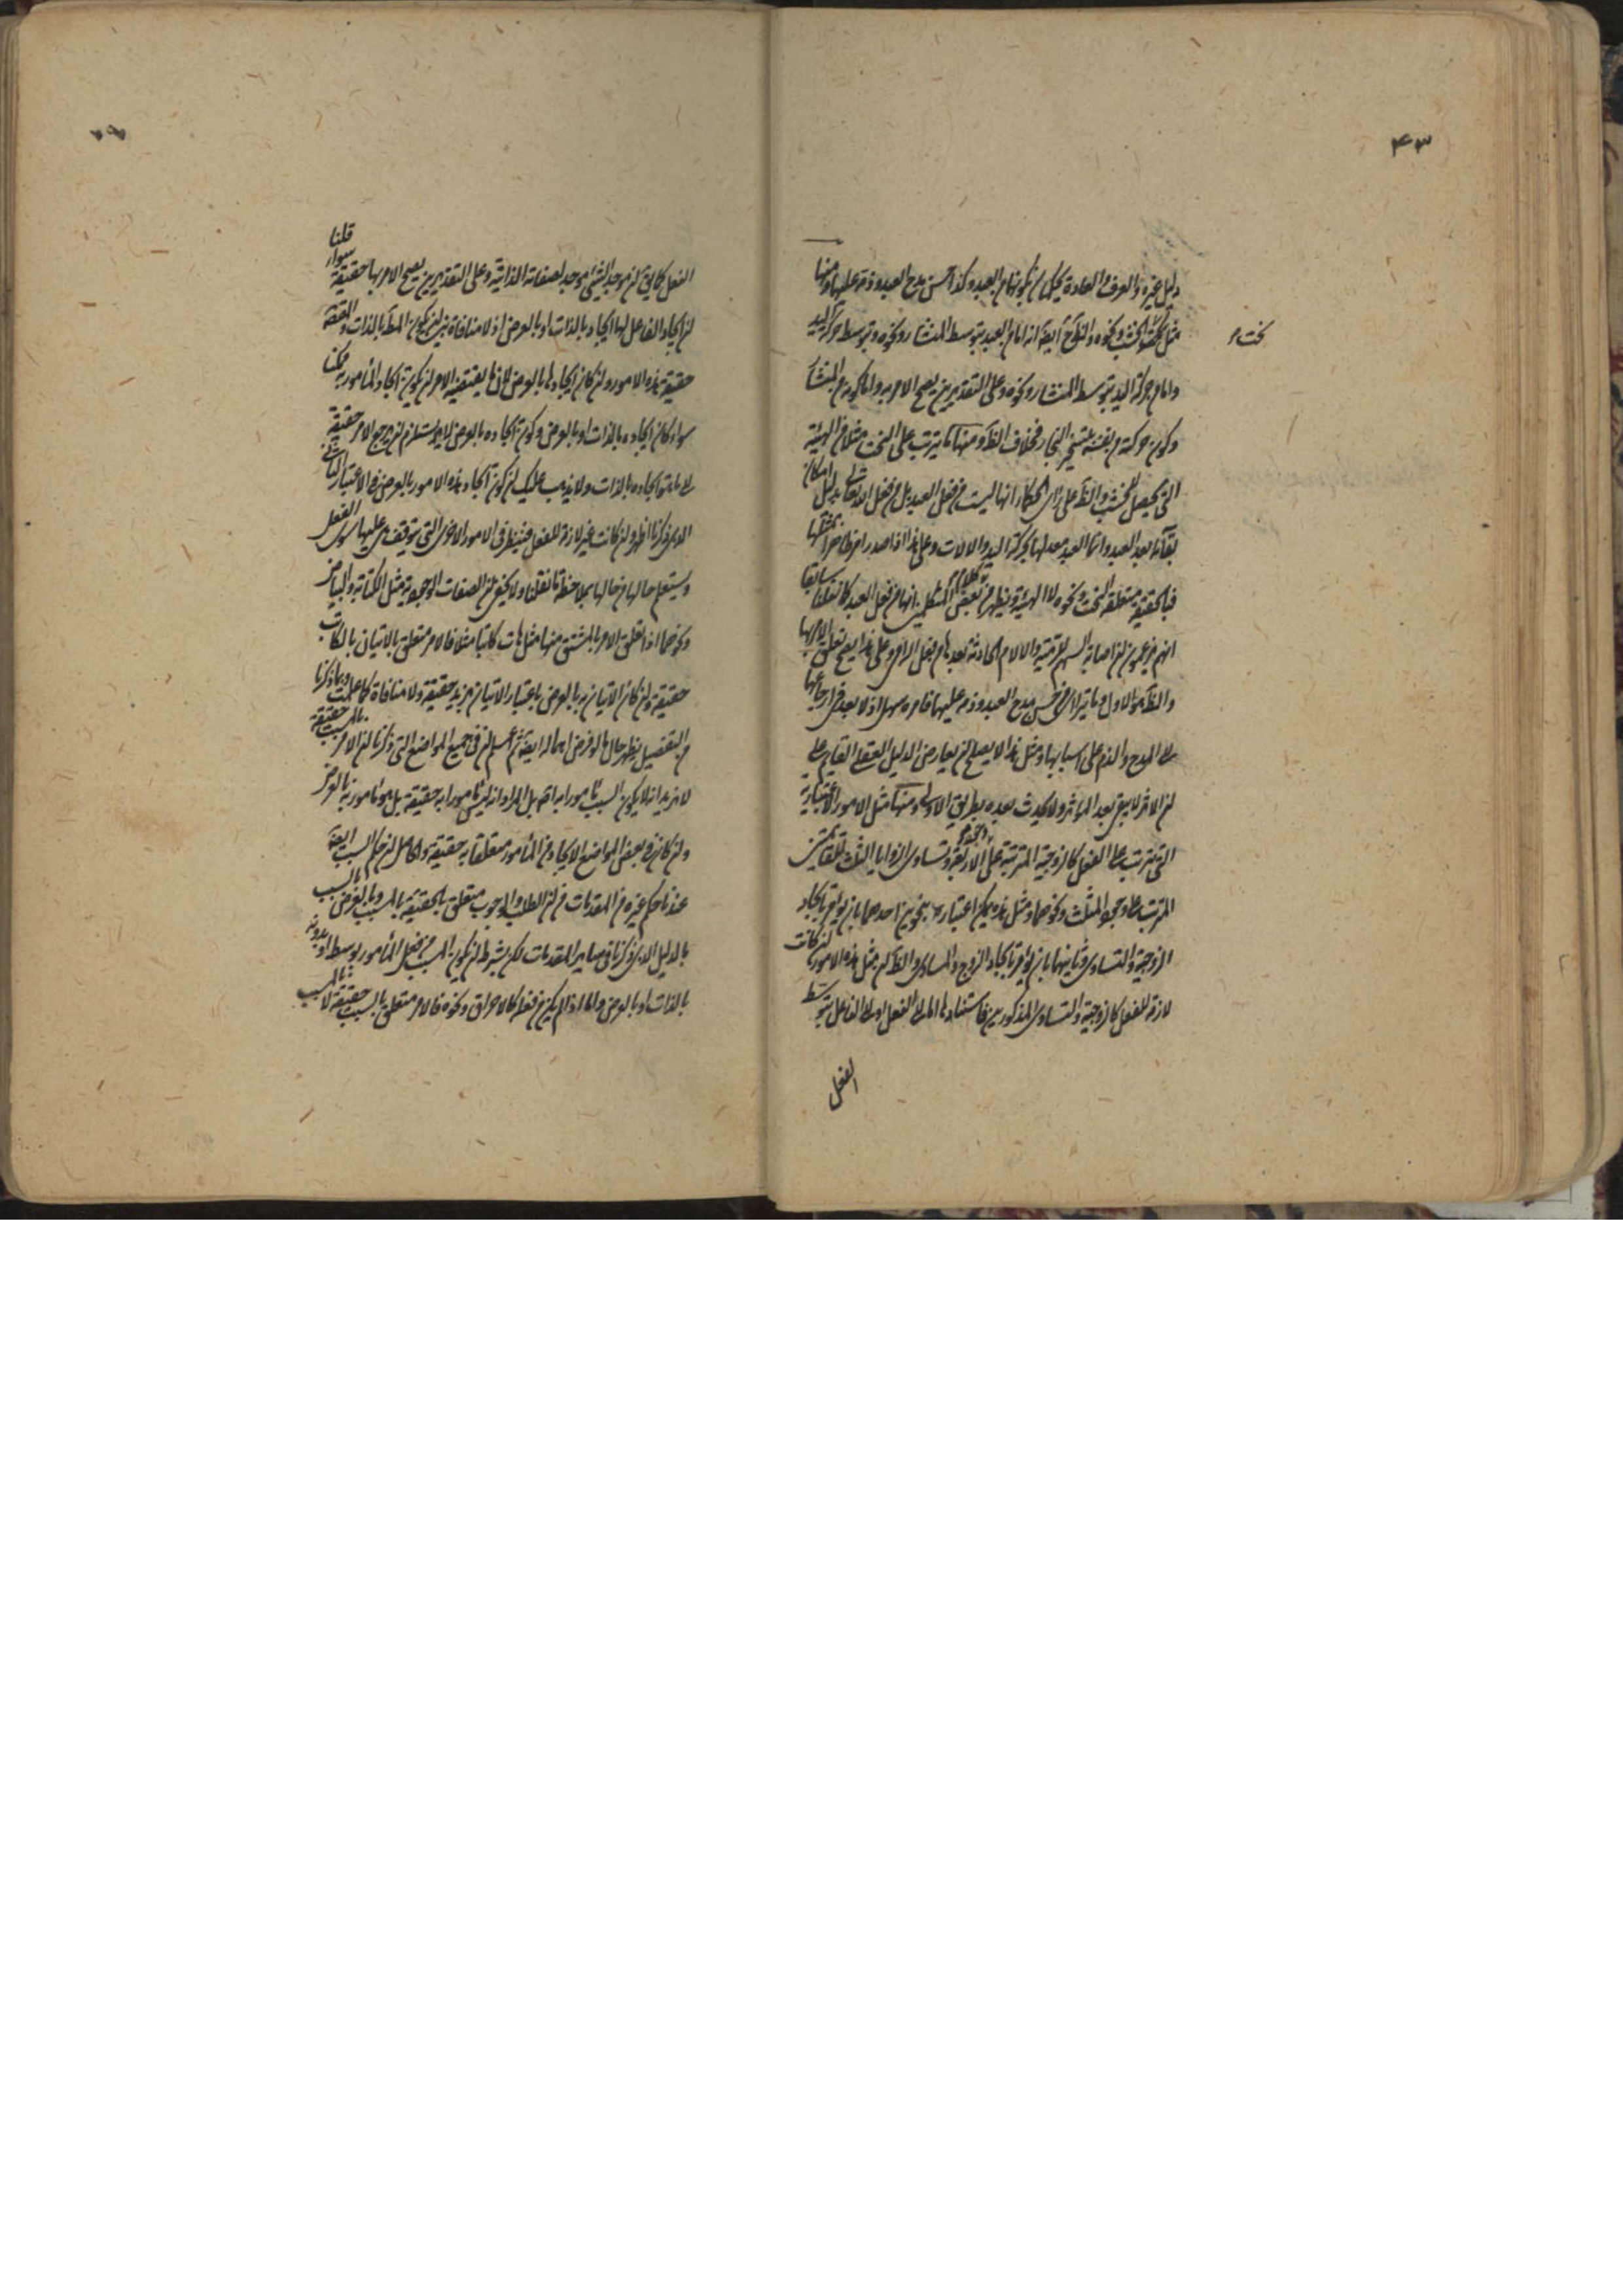 ۴۳
دليل غيره والعرف والعادة يحكمان بكونها من العبد وكذا حسن مدح العبد وذمه عليها ومنها
مثل الخشب ونحوه والظ ح ايضا انه اما من العبد بتوسط المنشار ونحوه وبتوسط حركة اليد
نحت
واما من حركة اليد بتوسط المنشار ونحوه وعلى التقديرين يصح الامر به واما كونه من المنشار
وكون حركته بنفسه بتسخير النجار فخلاف الظ ومنها ما يترتب على النحت مثلا من الهيئة
التي يحصل للخشب والظ على راى الحكماء انها ليست من فعل العبد بل من فعل الله تعالى بدليل امكان
بقائه بعد العبد وانما العبد معد لها بحركة اليد والالات وعلى هذا اذا صدر امر ظاهرا بمثلها
فبالحقيقة متعلقه النحت ونحوه لا الهيئة ويظهر من كلام بعض المتكلمين انها من فعل العبد كما نقلنا سابقا
انهم يزعمون ان اصابة السهم للرمية والالام الحادثة بعدها من فعل الرامي وعلى هذا يصح تعلق الامر بها
والظ هو الاول وما يتراءى من حسن مدح العبد وذمه عليها فامره سهل اذ لا بعد في ارجاعها
الى المدح والذم على اسبابها ومثل هذا لا يصلح لان يعارض الدليل العقلى القايم على
ان الاثر لا يبقى بعد المؤثر ولا يحدث بعده بطريق الاولى ومنها مثل الامور الاعتبارية
التي يترتب على الفعل كالزوجية المترتبة على وجود الاربعة وتساوى الزوايا الثلث للقائمتين
المترتب على وجود المثلث ونحوهما ومثل هذه يمكن اعتباره بنحوين احدهما بان يؤمر بايجاد
الزوجية والتساوى وثانيهما بان يؤمر بايجاد الزوج والمساوى والظ ان مثل هذه الامور ان كانت
لازمة للفعل كالزوجية والتساوى المذكورين فاستنادها اما الى الفعل او الى الفاعل بتوسط
الفعل
الفعل كما يق ان موجد الشىء موجد لصفاته الذاتية وعلى التقديرين يصح الامر بها حقيقة سواء قلنا
ان ايجاد الفاعل لها ايجاد بالذات او بالعرض اذ لا منافاة بين ان يكون المط بالذات والمقصود
حقيقة هذه الامور وان كان ايجادها بالعرض لان ما يقتضيه الامر ان يكون ايجاد المأمور به ممكنا
سواء كان ايجاده بالذات او بالعرض وكون ايجاده بالعرض لا يستلزم ان يرجع الامر حقيقة
الى ما هو ايجاده بالذات ولا يذهب عليك ان كون ايجاد هذه الامور بالعرض في الاعتبار الثاني
الذى ذكرنا اظهر وان كانت غير لازمة للفعل فينظر في الامور الاخرى التي يتوقف هى عليها سوى الفعل
ويستعلم حالها من حالها بملاحظة ما نقلنا ولا يخفى ان الصفات الوجودية مثل الكتابة والبياض
ونحوهما اذا تعلق الامر بالمشتق منها مثل هات كاتبا مثلا فالامر متعلق بالاتيان بالكاتب
حقيقة وان كان الاتيان به بالعرض باعتبار الاتيان بزيد حقيقة ولا منافاة كما علمت وبما ذكرنا
من التفصيل يظهر حال ما لو فرض اهماله ايضا ثم اعلم ان في جميع المواضع التي ذكرنا ان الامر بالسبب حقيقة
لا نريد انه لا يكون المسبب مأمورا به اصلا بل المراد انه ليس مأمورا به حقيقة بل هو مأمور به بالعرض
وان كان في بعض المواضع الايجاد من المأمور متعلقا به حقيقة والحاصل ان حكم السبب ايضا
عندنا حكم غيره من المقدمات في ان الطلب والوجوب متعلق بالحقيقة بالمسبب وبالعرض بالسبب
بالدليل الذى ذكرنا في ساير المقدمات لكن بشرط ان يكون المسبب من فعل المأمور بوسط او بدونه
بالذات او بالعرض واما اذا لم يكن من فعله كالاحراق ونحوه فالامر متعلق بالسبب حقيقة لا بالمسبب